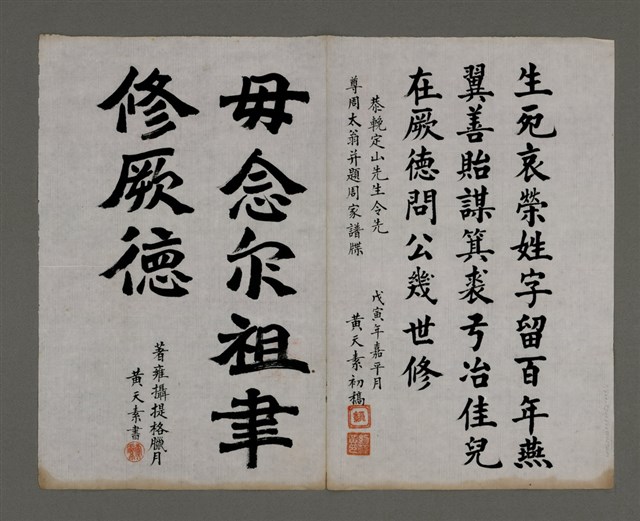 生死哀榮姓字留百年燕
翼善貽謀箕裘弓冶佳兒
在厥德問公幾世修
恭輓定山先生令先
尊周太翁并題周家譜牒
戊寅年嘉平月
黃天素初稿
毋念尔祖聿
修厥德
著雍攝提格臘月
黃天素書